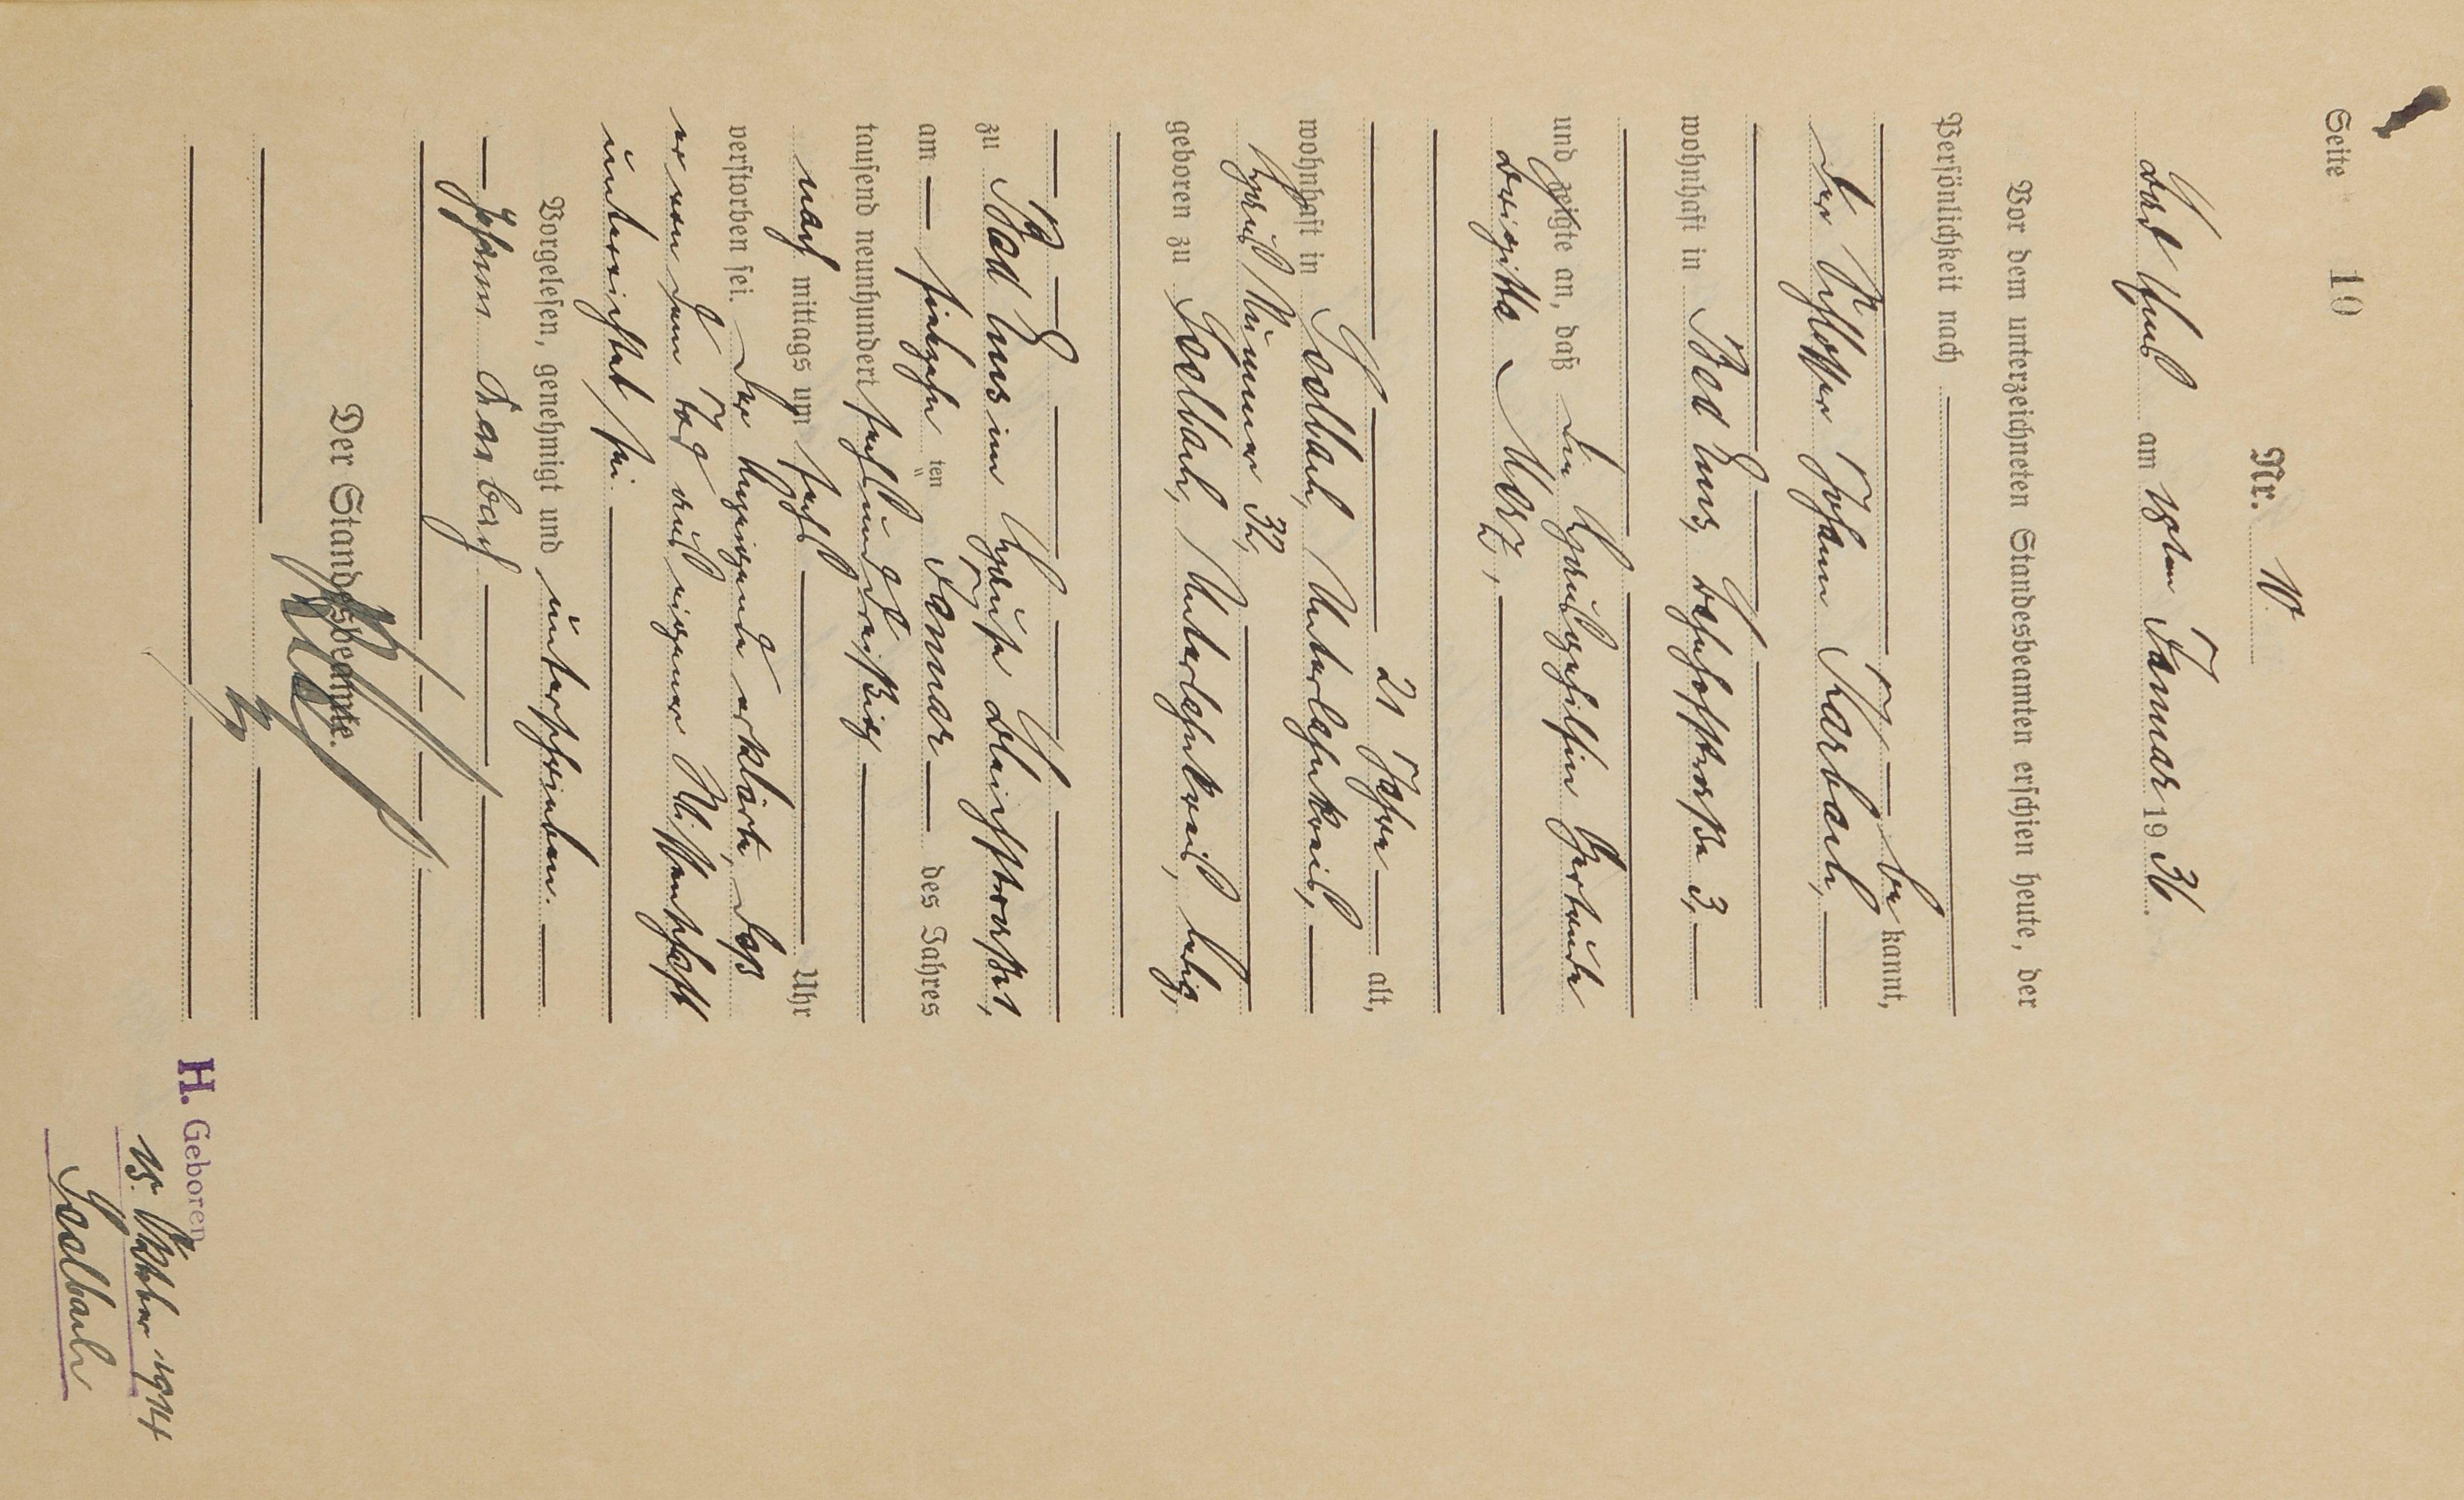 Seite 10
Nr. 10.
Bad Ems am 18ten Januar 1936.
Vor dem unterzeichneten Standesbeamten erschien heute, der
Persönlichkeit nach
be kannt,
der Schlosser Johann Karbach,
wohnhaft in Bad Ems, Bahnhofstraße 3,
und zeigte an, daß die Hausgehilfin Gertrude
Brigitte
21 Jahre alt,
wohnhaft in Hadbach, Unterlahnkreis,
Haus Nummer 32,
geboren zu Hadbach, Unterlahnkreis, ledig,
zu Bad Ems im Hause Bleichstraße 1,
am fünfzehn ten Januar des Jahres
tausend neunhundert sechsunddreißig
nach mittags um sechs Uhr
verstorben sei. Der Anzeigende erklärte, daß
er von dem Tod aus eigener Wissenschaft
unterrichtet sei.
Vorgelesen, genehmigt und unterschrieben.
Johann Karbach
Der Standesbeamte.
H. Geboren
15. Oktober 1914
Hadbach